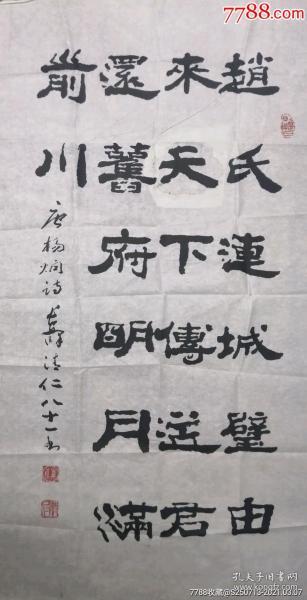 7788.com
趙氏連城璧由
來天下傳送君
還舊府明月滿
前川
唐楊炯詩 清仁八十一书
孔夫子旧书网
www.kongfz.com
7788收藏@S250713-2021.03.07